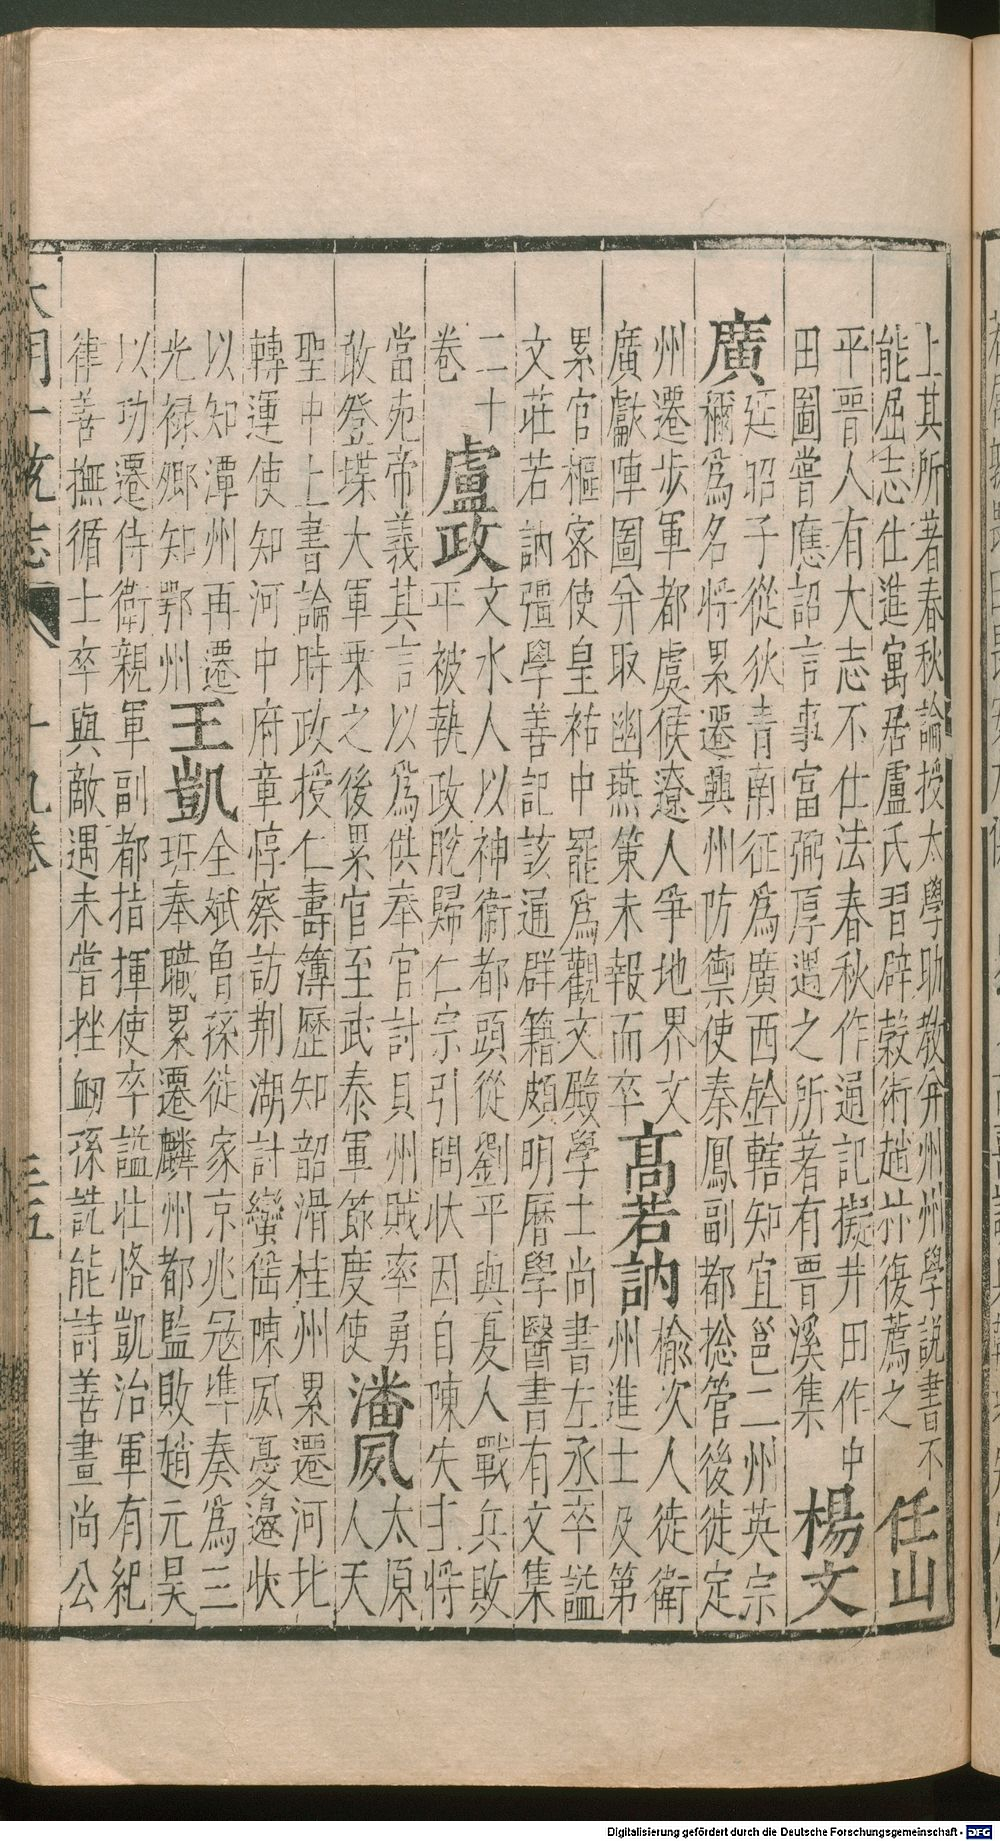 上其所著春秋論授太學助教分州州學説書不
能屈志仕進寓居盧氏習辟穀術趙抃復薦之
任山
平晋人有大志不仕法春秋作通記擬井田作中
田圖嘗應詔言事富弼厚遇之所著有晋溪集
楊文
廣
延昭子從狄青南征爲廣西鈐轄知宜邕二州英宗
禰爲名將累遷興州防禦使秦鳳副都捴管後徙定
州遷步軍都虞候遼人爭地界文
廣獻陣圖并取幽燕策未報而卒
高若訥
榆次人徒衛
州進士及第
累官樞密使皇祐中罷爲觀文殿學士尚書左丞卒諡
文莊若訥彊學善記該通群籍頗明曆學醫書有文集
二十
卷
盧政
文水人以神衛都頭從劉平與夏人戰兵敗
平被執政脫歸仁宗引問狀因自陳失主將
當死帝義其言以爲供奉官討貝州賊率勇
敢登堞大軍乘之後累官至武泰軍節度使
潘夙
太原
人天
聖中上書論時政授仁壽簿歷知韶滑桂州累遷河北
轉運使知河中府章惇察訪荆湖討蠻徭陳夙憂邉狀
以知潭州再遷
光禄卿知鄂州
王凱
全斌曾孫徙家京兆冦凖奏爲三
班奉職累遷麟州都監敗趙元昊
以功遷侍衛親軍副都指揮使卒諡壮恪凱治軍有紀
律善撫循士卒與敵遇未嘗挫衂孫詵能詩善畫尚公
大明一統志 十九卷 三五
Digitalisierung gefördert durch die Deutsche Forschungsgemeinschaft - DFG